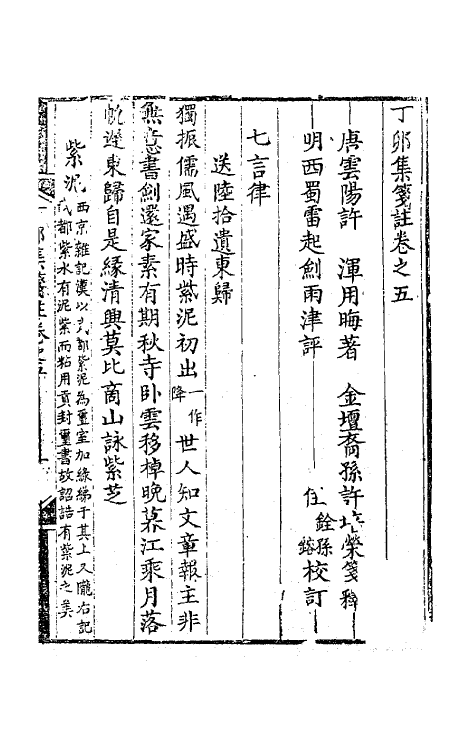 丁卯集箋註卷之五
唐雲陽許 渾用晦著 金壇裔孫許培榮箋釋
明西蜀雷起劍雨津評 任銓孫鎔校訂
七言律
送陸拾遺東歸
獨振儒風遇盛時紫泥初出一作降世人知文章報主非
無意書劍還家素有期秋寺臥雲移棹晚暮江乘月落
帆遲東歸自是緣清興莫比商山詠紫芝
紫泥西京雜記漢以武都紫泥為璽室加綠綈于其上又隴右記
武都紫水有泥紫而粘用貢封璽書故詔誥有紫泥之美